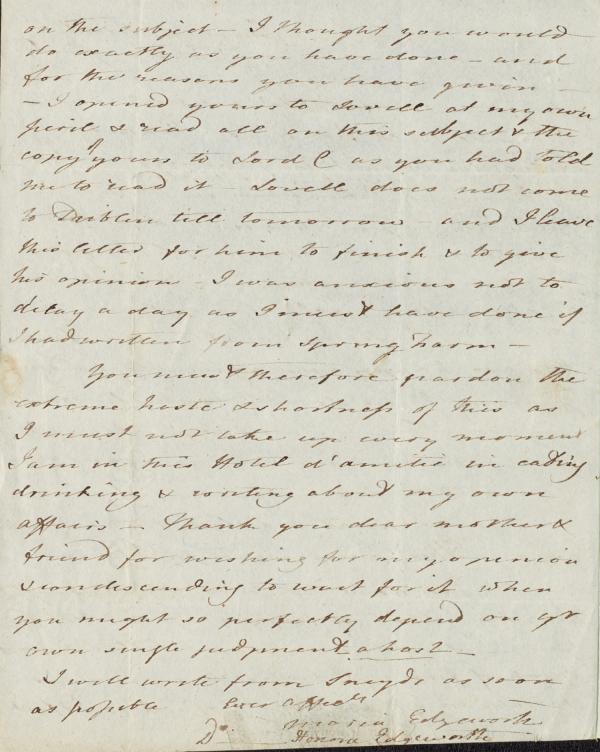 on the subject – I thought you would
do exactly as you have done – and
for the reasons you have given –
– I opened yours to Lovell at my own
peril & read all on this subject & the
copy of yours to Lord C as you had told
me to read it – Lovell does not come
to Dublin till tomorrow – and I leave
this letter for him to finish & to give
his opinion – I was anxious not to
delay a day as I must have done if
I had written from Spring Farm –
You must therefore pardon the
extreme haste & shortness of this as
I must not take up every moment
I am in this Hotel d'amitié in eating
drinking & writing about my own
affairs – Thank you dear mother &
friend for wishing for my opinion
& condescending to wait for it when
you might so perfectly depend on yr
own single judgment a host –
I will write from Sneyds as soon
as possible Ever affecly
Maria Edgeworth
Honora Edgeworth